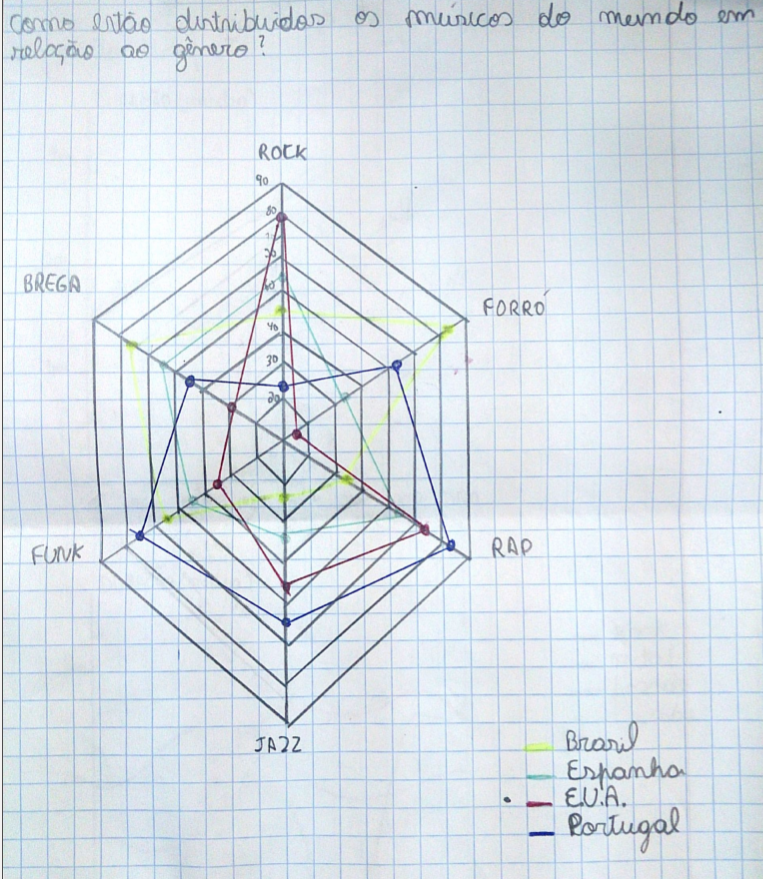 como estão distribuidos os músicos do mundo em
relação ao gênero?
ROCK
90
80
70
60
BREGA
FORRÓ
40
30
20
FUNK
RAP
JAZZ
Brasil
Espanha
E.U.A.
Portugal